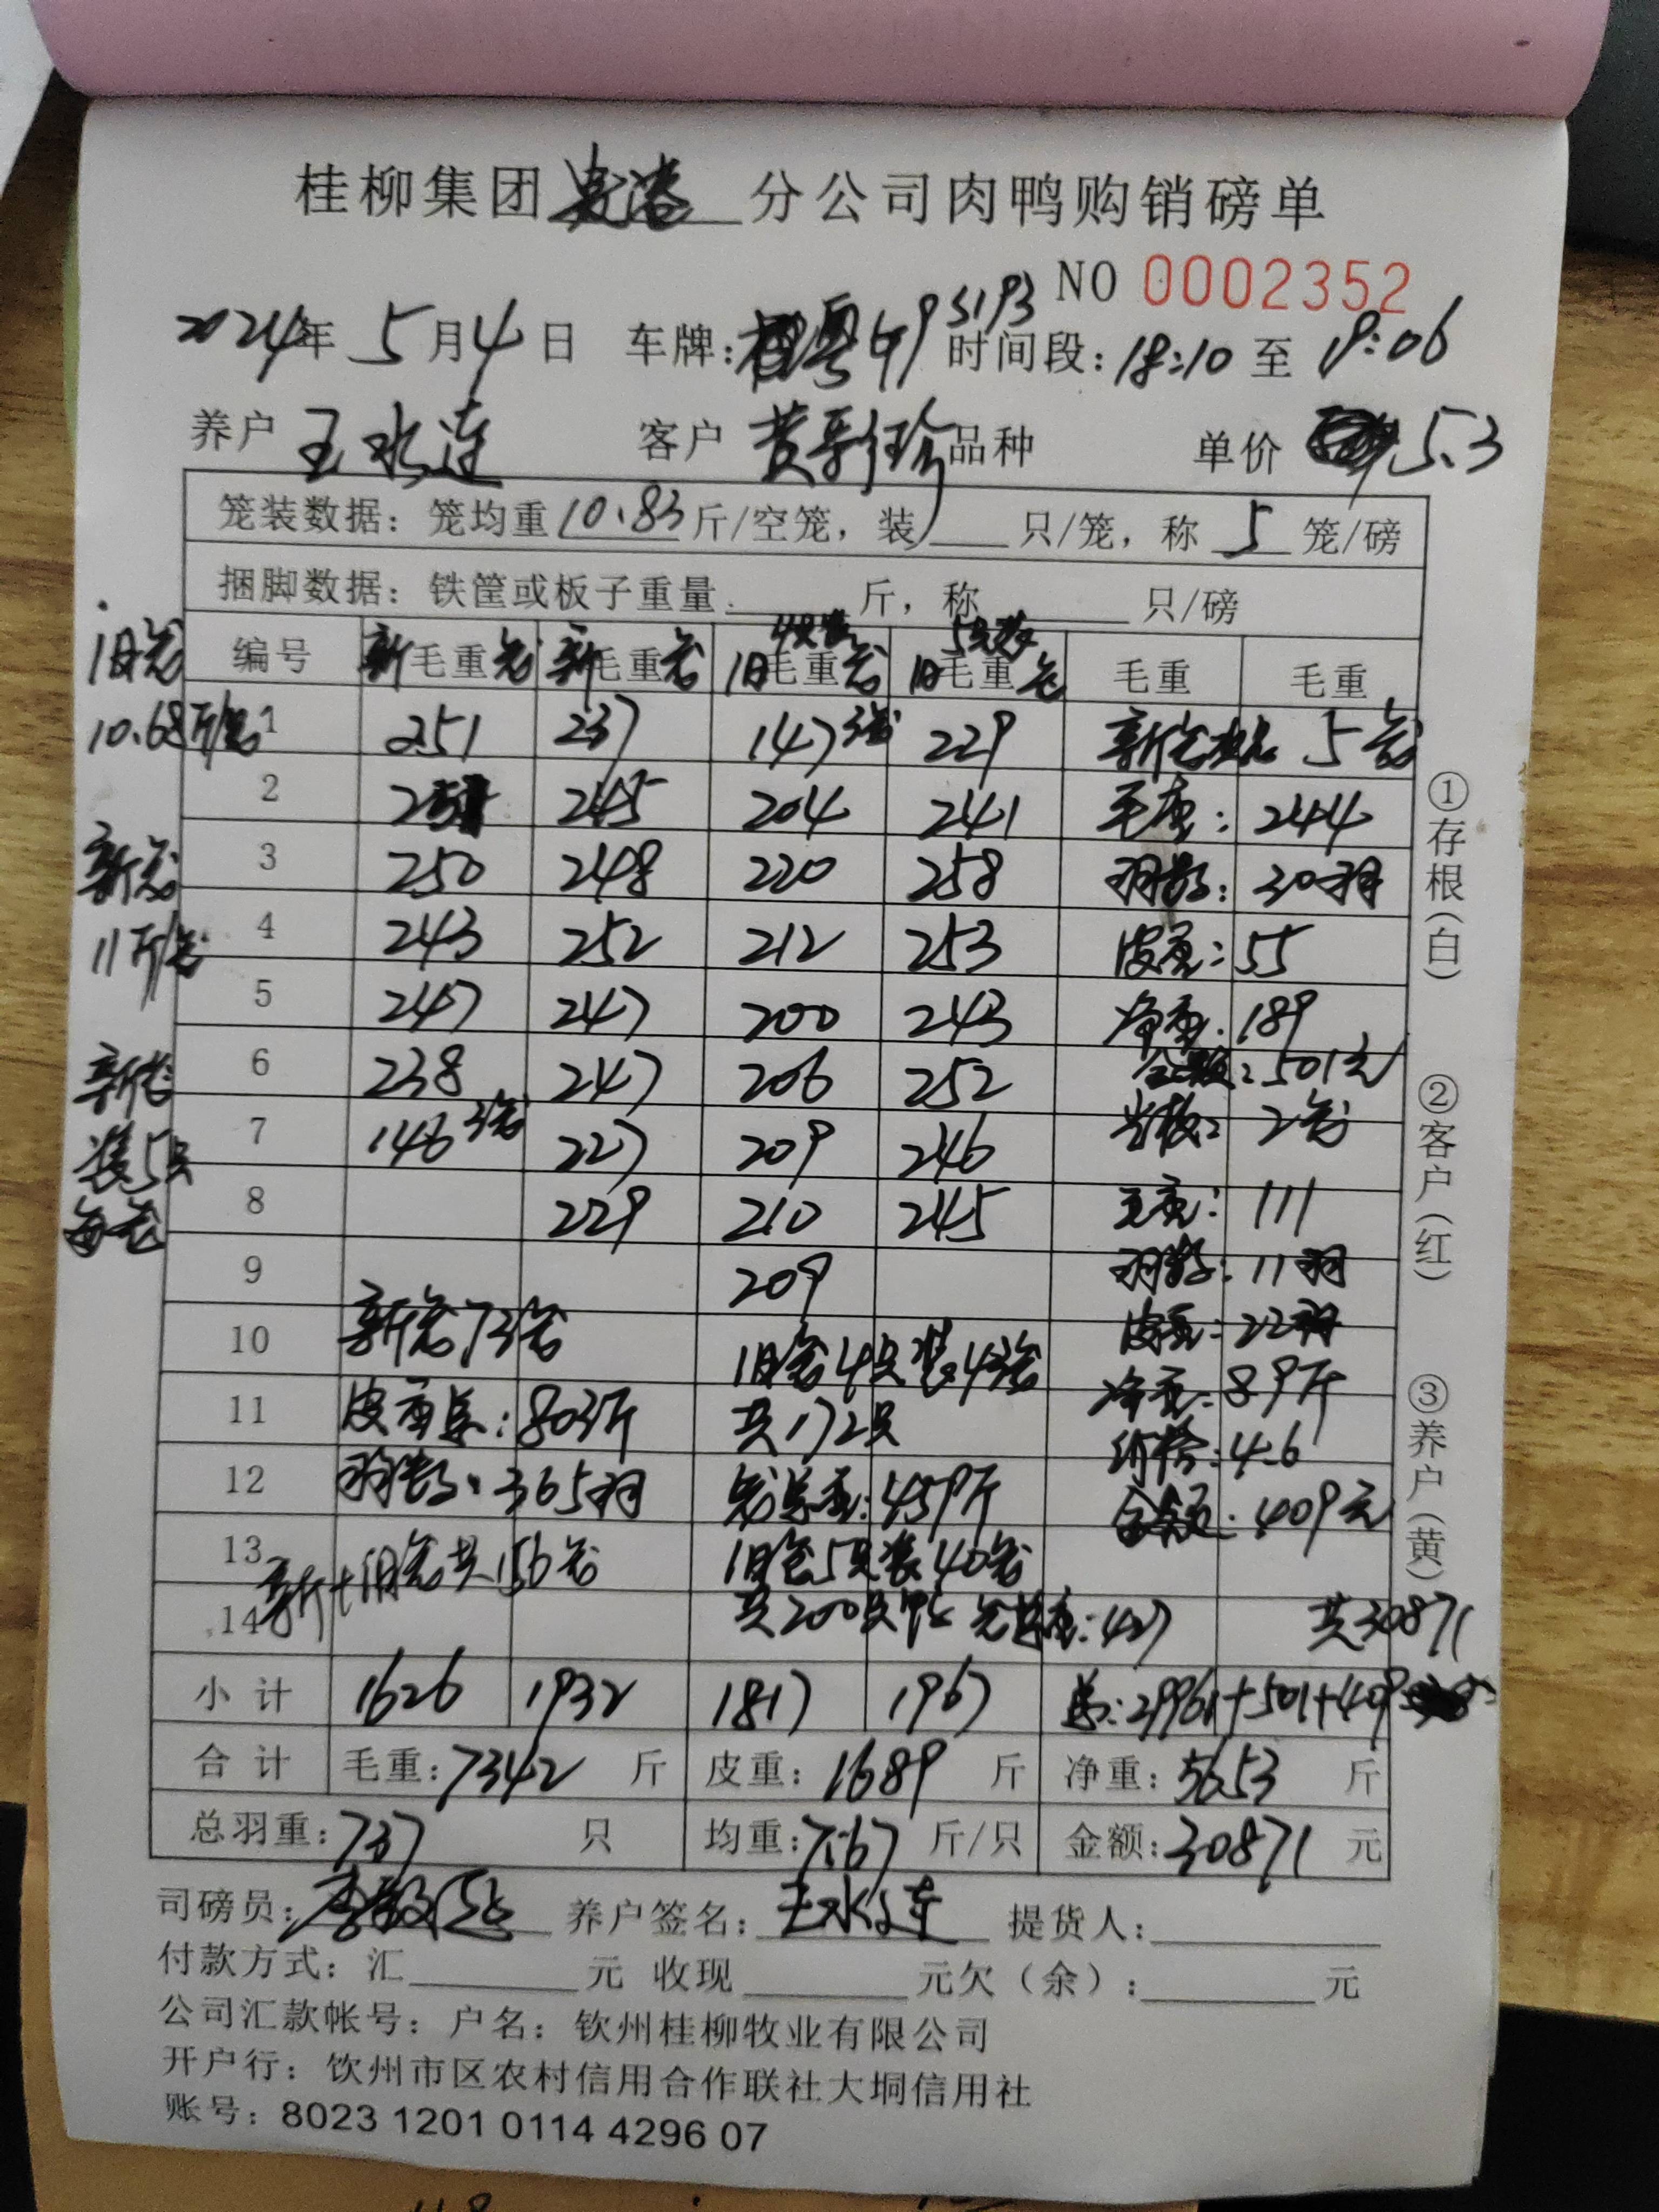 桂柳集团 分公司肉鸭购销磅单
NO 0002352
2024年 5月4日 车牌: 5193 时间段:18:10 至 19:06
养户 王水连 客户 黄 品种 单价 5.3
笼装数据:笼均重10.83斤/空笼,装 只/笼,称 5 笼/磅
捆脚数据:铁筐或板子重量 斤,称 只/磅
旧笼 编号 新毛重笼 新毛重笼 旧毛重笼 4只装 旧毛重笼 5只装 毛重 毛重
10.68斤/笼 1 251 237 147 3笼 229 新笼 5笼
2 251 245 204 241 毛重: 244
新笼 3 250 248 220 258 羽数: 30羽
11斤/笼 4 243 252 212 253 皮重: 55
5 247 247 200 243 净重: 189
新笼 6 238 247 206 252 金额: 501元
装5只 7 146 3笼 227 209 246 2笼
每笼 8 229 210 245 毛重: 111
9 209 羽数: 11羽
10 新笼73笼 旧笼4只装43笼 皮重: 22
11 皮重总: 803斤 共172只 净重: 89斤
12 羽数: 365羽 笼总重: 459斤 价格: 4.6
13 新+旧笼共156笼 旧笼5只装40笼 金额: 409元
14 共200只鸭 笼总重: 427 共30871
小计 1626 1932 1817 1967 总: 29961+501+409
合计 毛重: 7342 斤 皮重: 1689 斤 净重: 5653 斤
总羽重: 737 只 均重: 7.67 斤/只 金额: 30871 元
司磅员: 养户签名: 王水连 提货人:
付款方式:汇 元 收现 元欠(余): 元
公司汇款帐号:户名:钦州桂柳牧业有限公司
开户行:饮州市区农村信用合作联社大垌信用社
账号: 8023 1201 0114 4296 07
①存根(白)
②客户(红)
③养户(黄)